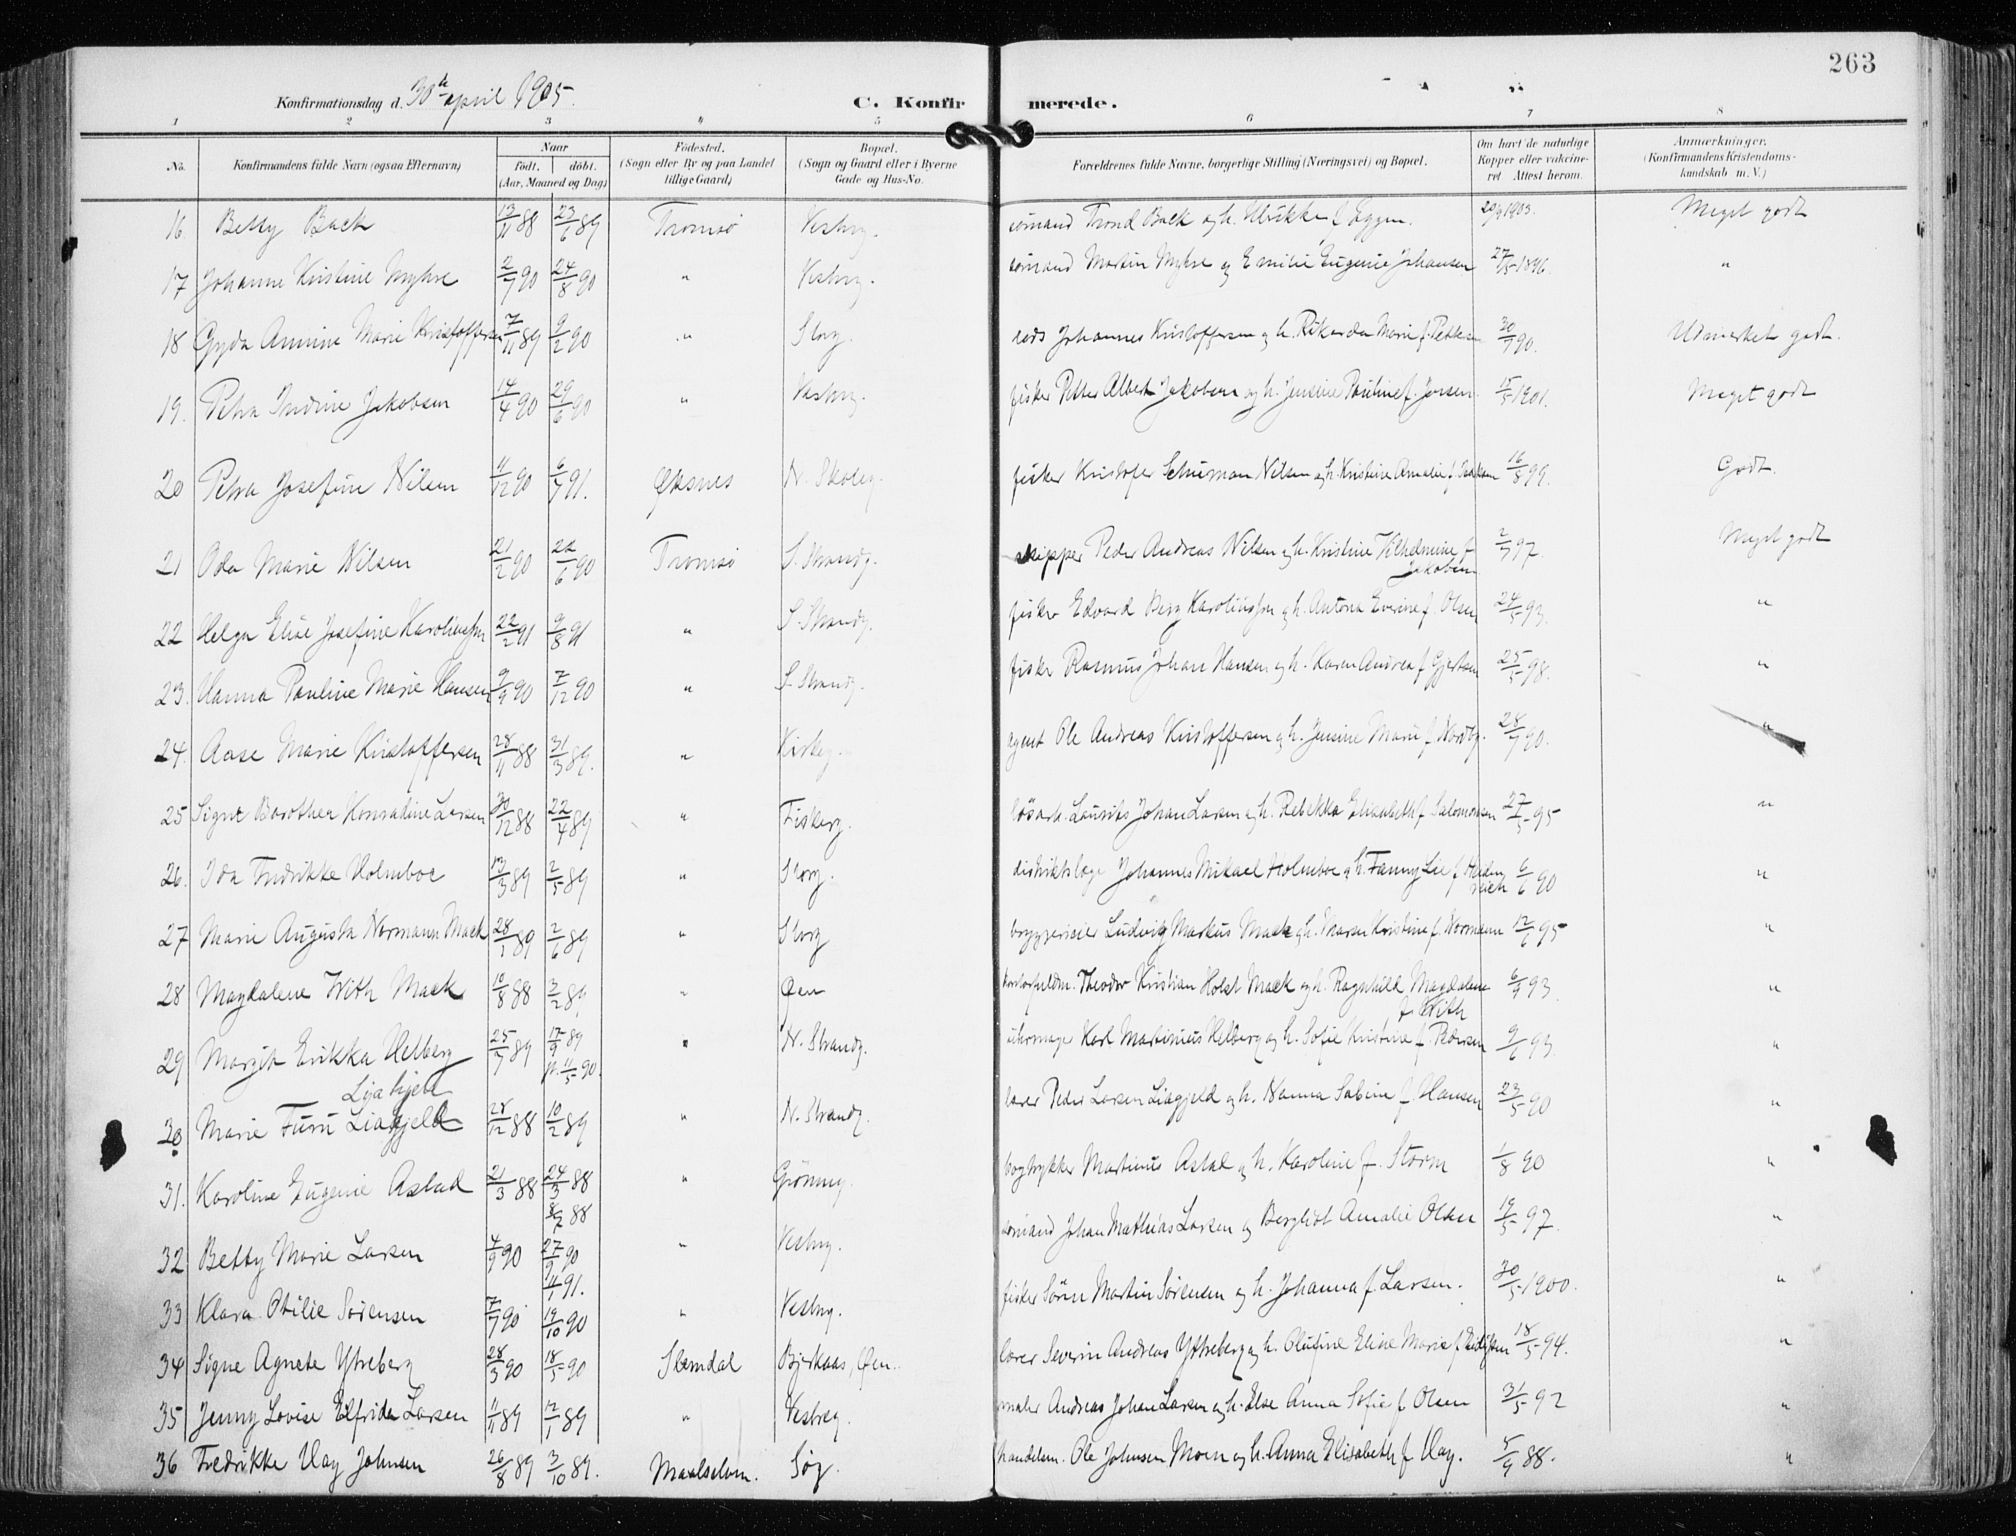 263
Konfirmationsdag d. 30te april 1905.
C. Konfirmerede.
1 2 3 4 5 6 7 8
No. Konfirmandens fulde Navn (ogsaa Efternavn) Naar født. døbt. (Aar, Maaned og Dag) Fødested. (Sogn eller By og paa Landet tillige Gaard) Bopæl. (Sogn og Gaard eller i Byerne Gade og Hus-No. Forældrenes fulde Navne, borgerlige Stilling (Næringsvei) og Bopæl. Om havt de naturlige Kopper eller vakcineret Attest herom. Anmærkninger. (Konfirmandens Kristendomskundskab m. V.)
16. Betty Back 13/11 88 23/6 89 Tromsø Vestreg. sømand Trond Back og h. Ulrikke f. Eggen. 1903. Meget godt
17 Johanne Kristine Myhre 2/7 90 24/8 90 " Vestreg. sømand Martin Myhre og Emilie Eugenie Johansen 27/5 1896. "
18 Gyda Annine Marie Kristoffersen 7/11 89 9/2 90 " Storg. lods Johannes Kristoffersen og h. Rikarda Marie f. Pettersen 30/7 90. Udmerket godt.
19. Petra Indine Jakobsen 14/4 90 29/6 90 " Vestreg. fisker Petter Albert Jakobsen og h. Jensine Pauline f. Jensen. 15/5 1901. Meget godt
20 Petra Josefine Nilsen 11/12 90 6/7 91. Øksnes N. Skoleg. fisker Kristofer Schuman Nilsen og h. Kristine Amalie f. Isaksen 16/8 99. Godt.
21 Oda Marie Nilsen 21/2 90 22/6 90 Tromsø S. Strandg. skipper Peder Andreas Nilsen og h. Kristine Vilhelmine f. Jakobsen 2/7 97. Meget godt
22 Helga Elise Josefine Karoliussen 22/2 91 9/8 91 " S. Strandg. fisker Edvard Berg Karoliussen og h. Antona Everine f. Olsen 24/5 93. "
23. Hanna Pauline Marie Hansen 9/9 90 7/12 90 " S. Strandg. fisker Rasmus Johan Hansen og h. Karen Andrea f. Gjertsen 25/5 98. "
24. Aase Marie Kristoffersen 28/11 88 31/3 89. " Kirkeg. agent Ole Andreas Kristoffersen og h. Jensine Marie f. Nordby. 28/7 90. "
25 Signe Dorothea Konradine Larsen 30/12 88 22/4 89 " Fiskerg. løsarb. Laurits Johan Larsen og h. Rebekka Elisabeth f. Salomonsen 27/5 95 "
26. Ida Fredrikke Holmboe 13/3 89 2/5 89 " Storg. distriktslæge Johannes Mikael Holmboe og h. Fanny Lie f. Heidenreich 6/6 90 "
27 Marie Augusta Normann Mack 28/1 89 2/6 89 " Storg bryggerieier Ludvig Markus Mack og h. Maren Kristine f. Normann 12/6 95 "
28 Magdalene With Mack 10/8 88 3/2 89 " Øen kontorfuldm. Theodor Kristian Holst Mack og h. Ragnhild Magdalene f. With 6/9 93. "
29 Margit Erikka Helberg 25/7 89 15/9 89 p. 11/5 90. " N. Strandg. uhrmager Karl Martinius Helberg og h. Sofie Kristine f. Pedersen 9/6 93. "
Liafjell
30 Marie Furu Liagjeld 28/12 88 10/2 89 " N. Strandg. lærer Peder Larsen Liagjeld og h. Hanna Sabine f. Hansen 23/5 90 "
31. Karoline Eugenie Astad 21/3 88 24/3 88 8/7 88 " Grønneg. bogtrykker Martinus Astad og h. Karoline f. Storm 1/8 90 "
32 Betty Marie Larsen 4/9 90 27/9 90 11/1 91. " Vestreg. sømand Johan Mathias Larsen og Bergliot Amalie Olsen 19/5 97. "
33 Klara Otilie Sørensen 7/7 90 19/10 90 " Vestreg. fisker Søren Martin Sørensen og h. Johanna f. Larsen. 30/5 1900. "
34 Signe Agnete Ytreberg 28/3 90 18/5 90 Slemdal Bjerkaas, Øen. lærer Severin Andreas Yttreberg og h. Olufine Eline Marie f. 18/5 94. "
35 Jenny Lovise Elfrida Larsen 11/11 89 12/1 89 " Vestreg. maler Andreas Johan Larsen og h. Else Anna Sofie f. Olsen 31/5 92 "
36 Fredrikke Vay Johnsen 26/8 89 3/10 89. Maalselven. Søg. handelsm. Ole Johnsen Moen og h. Anna Elisabeth f. Vay. 5/9 88. "